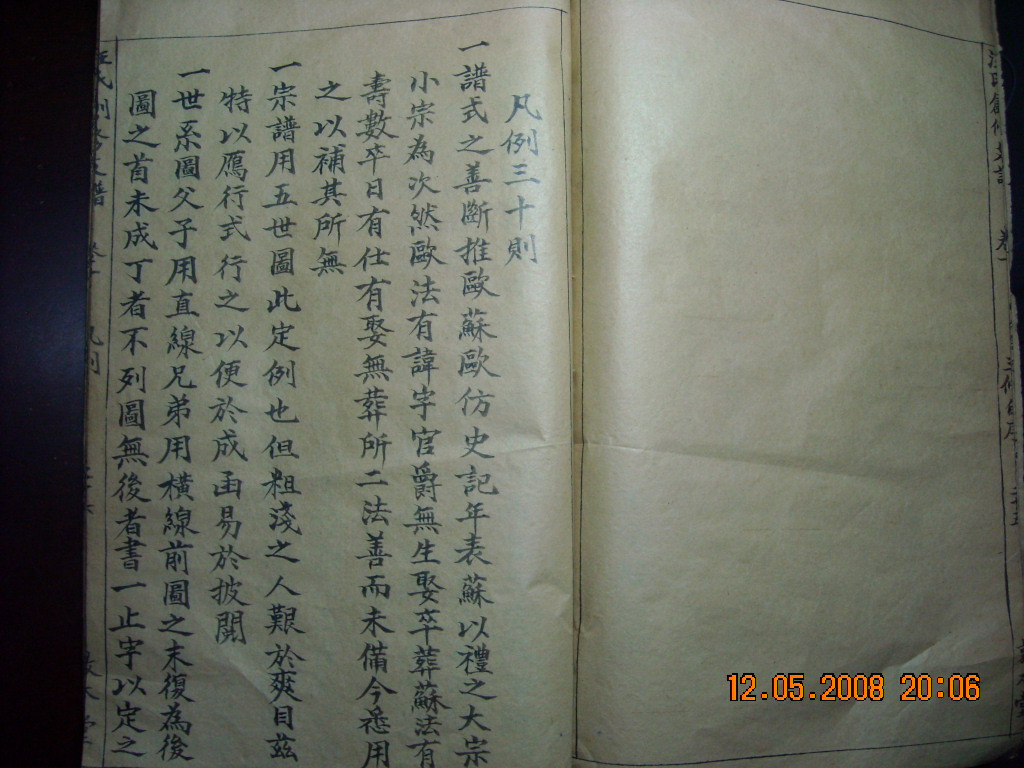 凡例三十則
一譜式之善斷推歐蘇歐仿史記年表蘇以禮之大宗
小宗為次然歐法有諱字官爵無生娶卒葬蘇法有
壽數卒日有仕有娶無葬所二法善而未備今悉用
之以補其所無
一宗譜用五世圖此定例也但粗淺之人艱於爽目茲
特以鴈行式行之以便於成函易於披閱
一世系圖父子用直線兄弟用橫線前圖之末復為後
圖之首未成丁者不列圖無後者書一止字以定之
12.05.2008 20:06